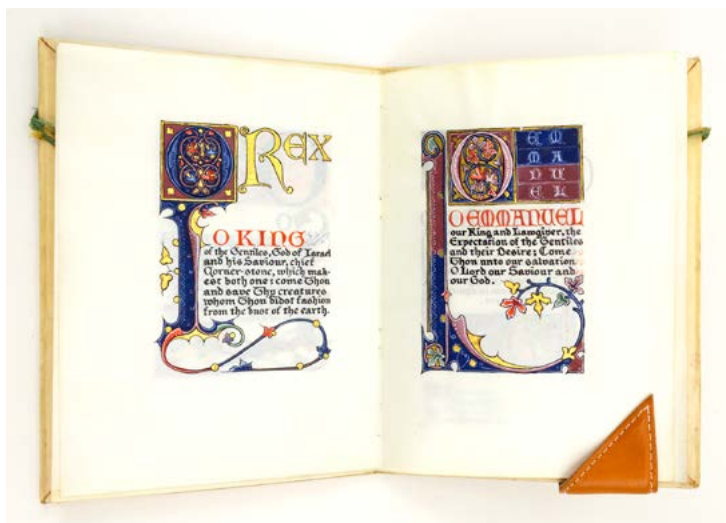 O REX
O KING
of the Gentiles, God of Israel
and his Saviour, chief
Corner-stone, which mak-
est both one: come Thou
and save Thy creatures
whom Thou didst fashion
from the dust of the earth.
O EM
MA
NU
EL
O EMMANUEL
our King and Lawgiver, the
Expectation of the Gentiles
and their Desire; Come
Thou unto our salvation
O Lord our Saviour and
our God.